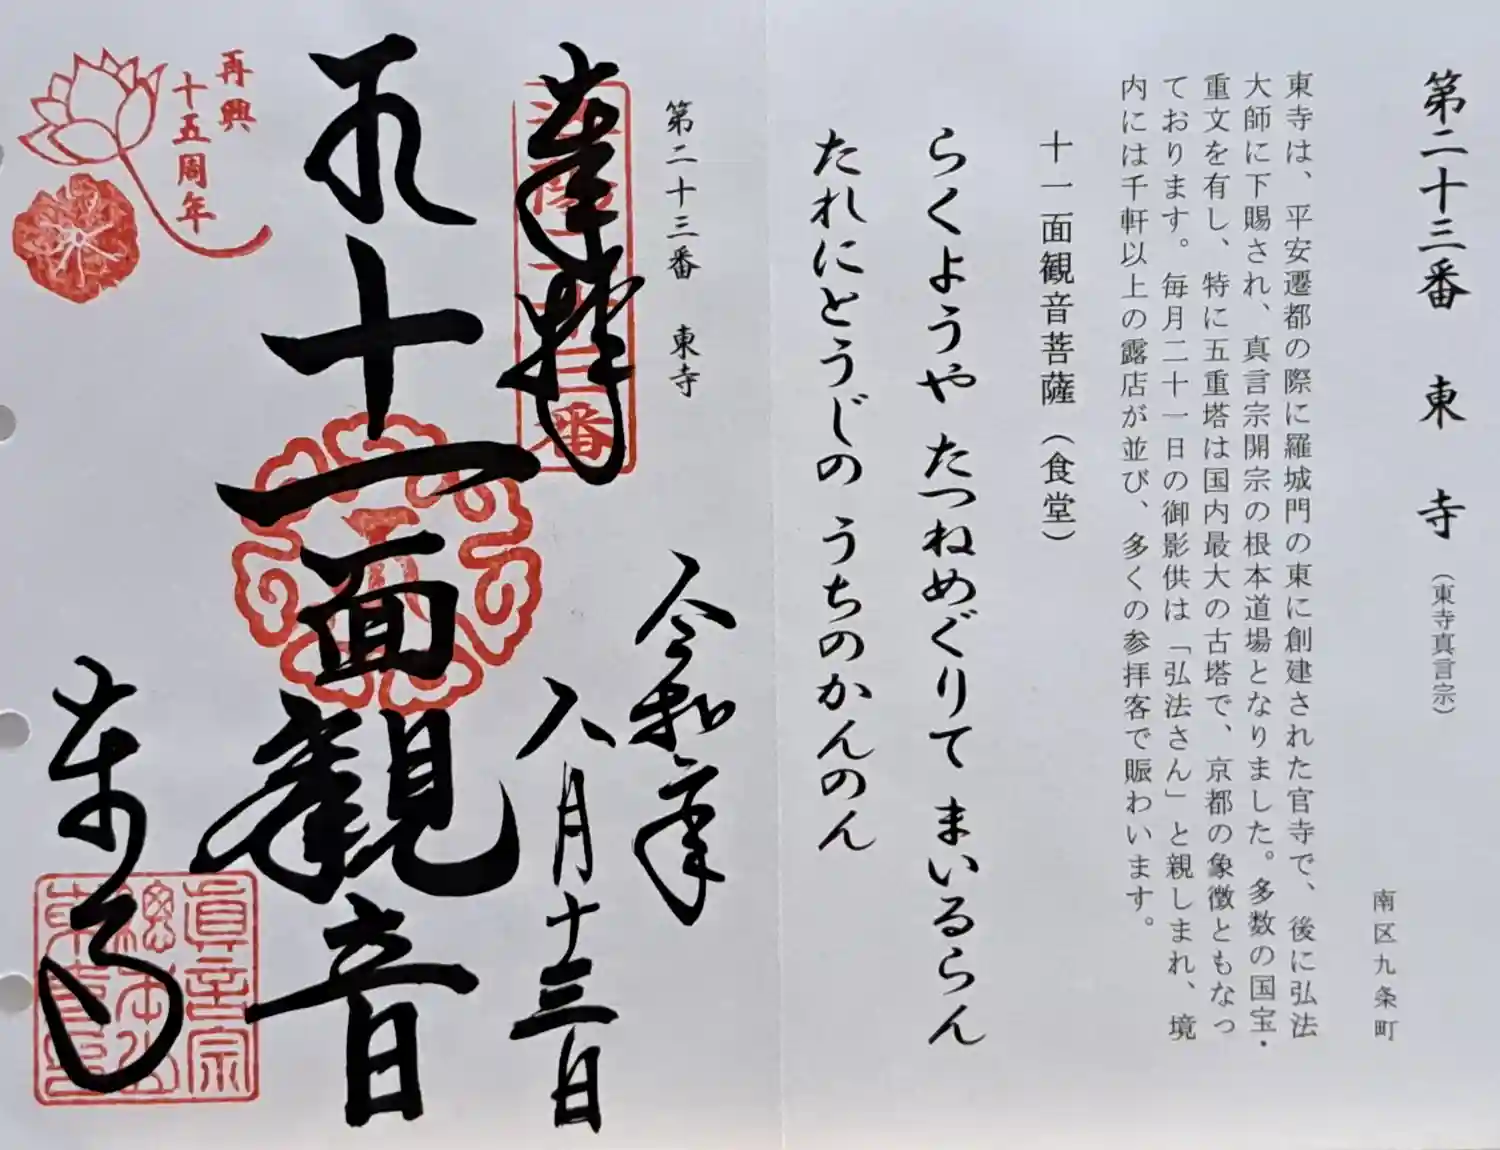 第二十三番 東寺 (東寺真言宗)
南区九条町
東寺は、平安遷都の際に羅城門の東に創建された官寺で、後に弘法
大師に下賜され、真言宗開宗の根本道場となりました。多数の国宝・
重文を有し、特に五重塔は国内最大の古塔で、京都の象徴ともなっ
ております。毎月二十一日の御影供は「弘法さん」と親しまれ、境
内には千軒以上の露店が並び、多くの参拝客で賑わいます。
十一面観音菩薩(食堂)
らくようや たつねめぐりて まいるらん
たれにとうじの うちのかんのん
第二十三番 東寺
奉拝
洛陽二十三番
令和
八月十三日
十一面観音
再興
十五周年
東寺
真言宗
總本山